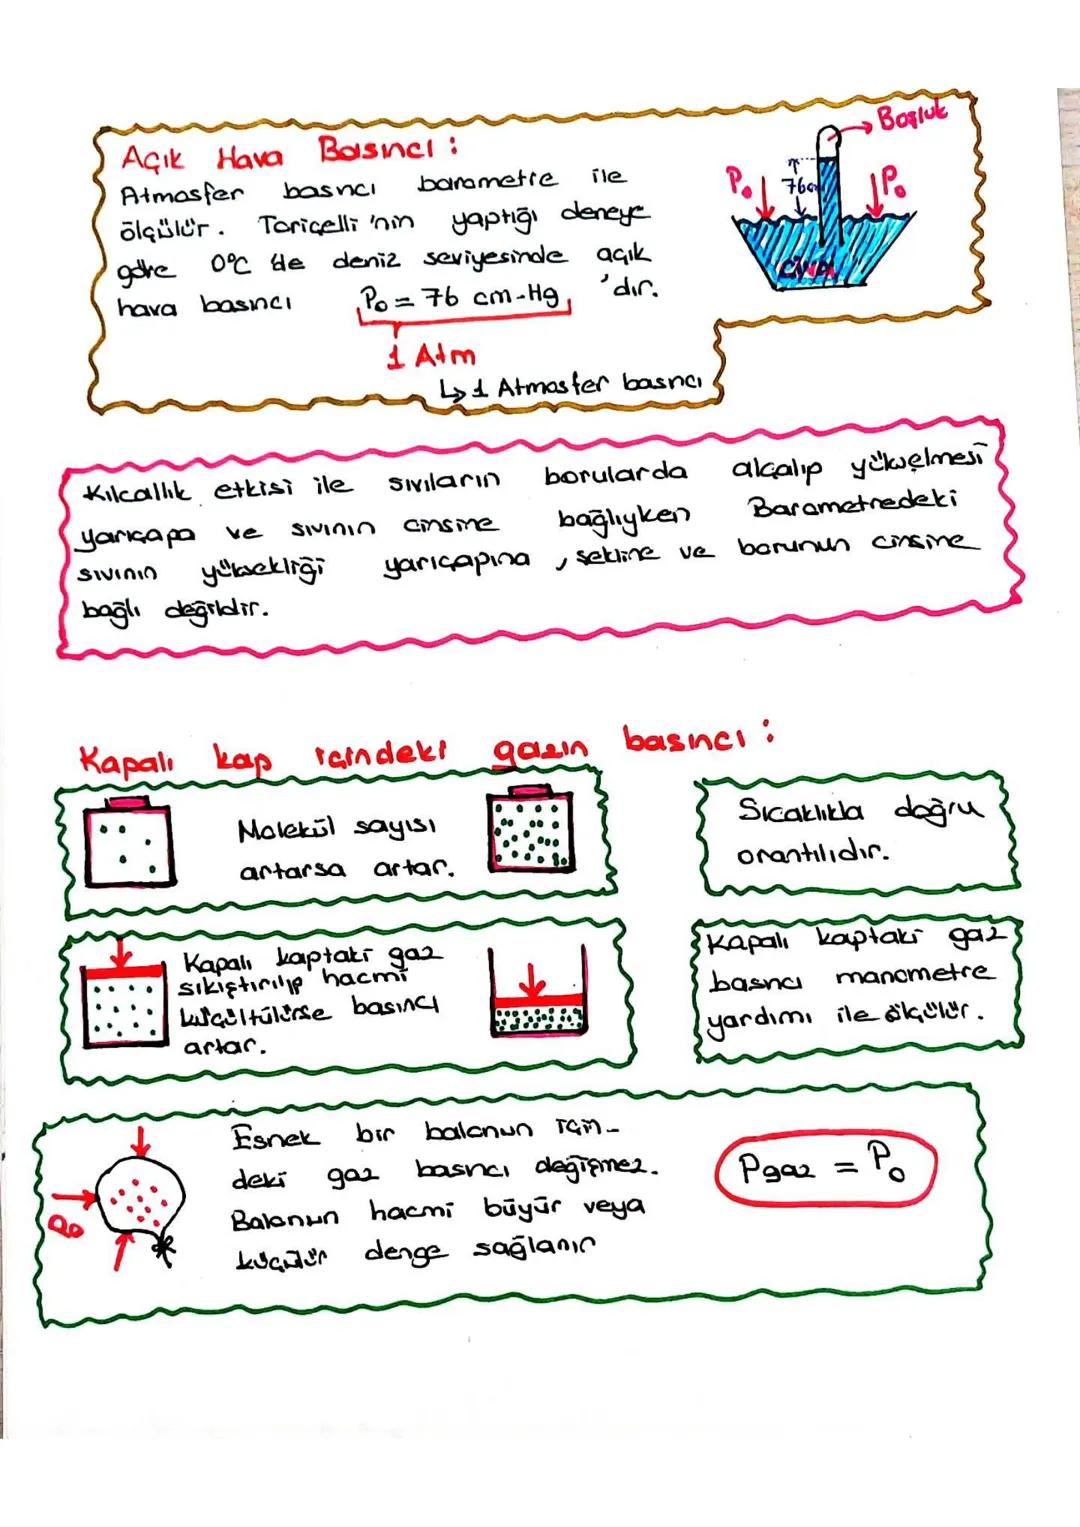 Açık Hava Basıncı :
Atmosfer basıncı barometre ile
ölçülür. Toriçelli'nin yaptığı deneye
göre 0°C de deniz seviyesinde açık
hava basıncı P₀ = 76 cm-Hg 'dır.
1 Atm
↳ 1 Atmosfer basıncı
Boşluk
P₀
76cm
P₀
CİVA
Kılcallık etkisi ile sıvıların borularda alçalıp yükselmesi
yarıçapa ve sıvının cinsine bağlıyken Barometredeki
sıvının yüksekliği yarıçapına, şekline ve borunun cinsine
bağlı değildir.
Kapalı kap içindeki gazın basıncı :
Molekül sayısı
artarsa artar.
Sıcaklıkla doğru
orantılıdır.
Kapalı kaptaki gaz
sıkıştırılıp hacmi
küçültülürse basıncı
artar.
Kapalı kaptaki gaz
basıncı manometre
yardımı ile ölçülür.
Esnek bir balonun için-
deki gaz basıncı değişmez.
Balonun hacmi büyür veya
küçülür denge sağlanır
P₀
Pgaz = P₀